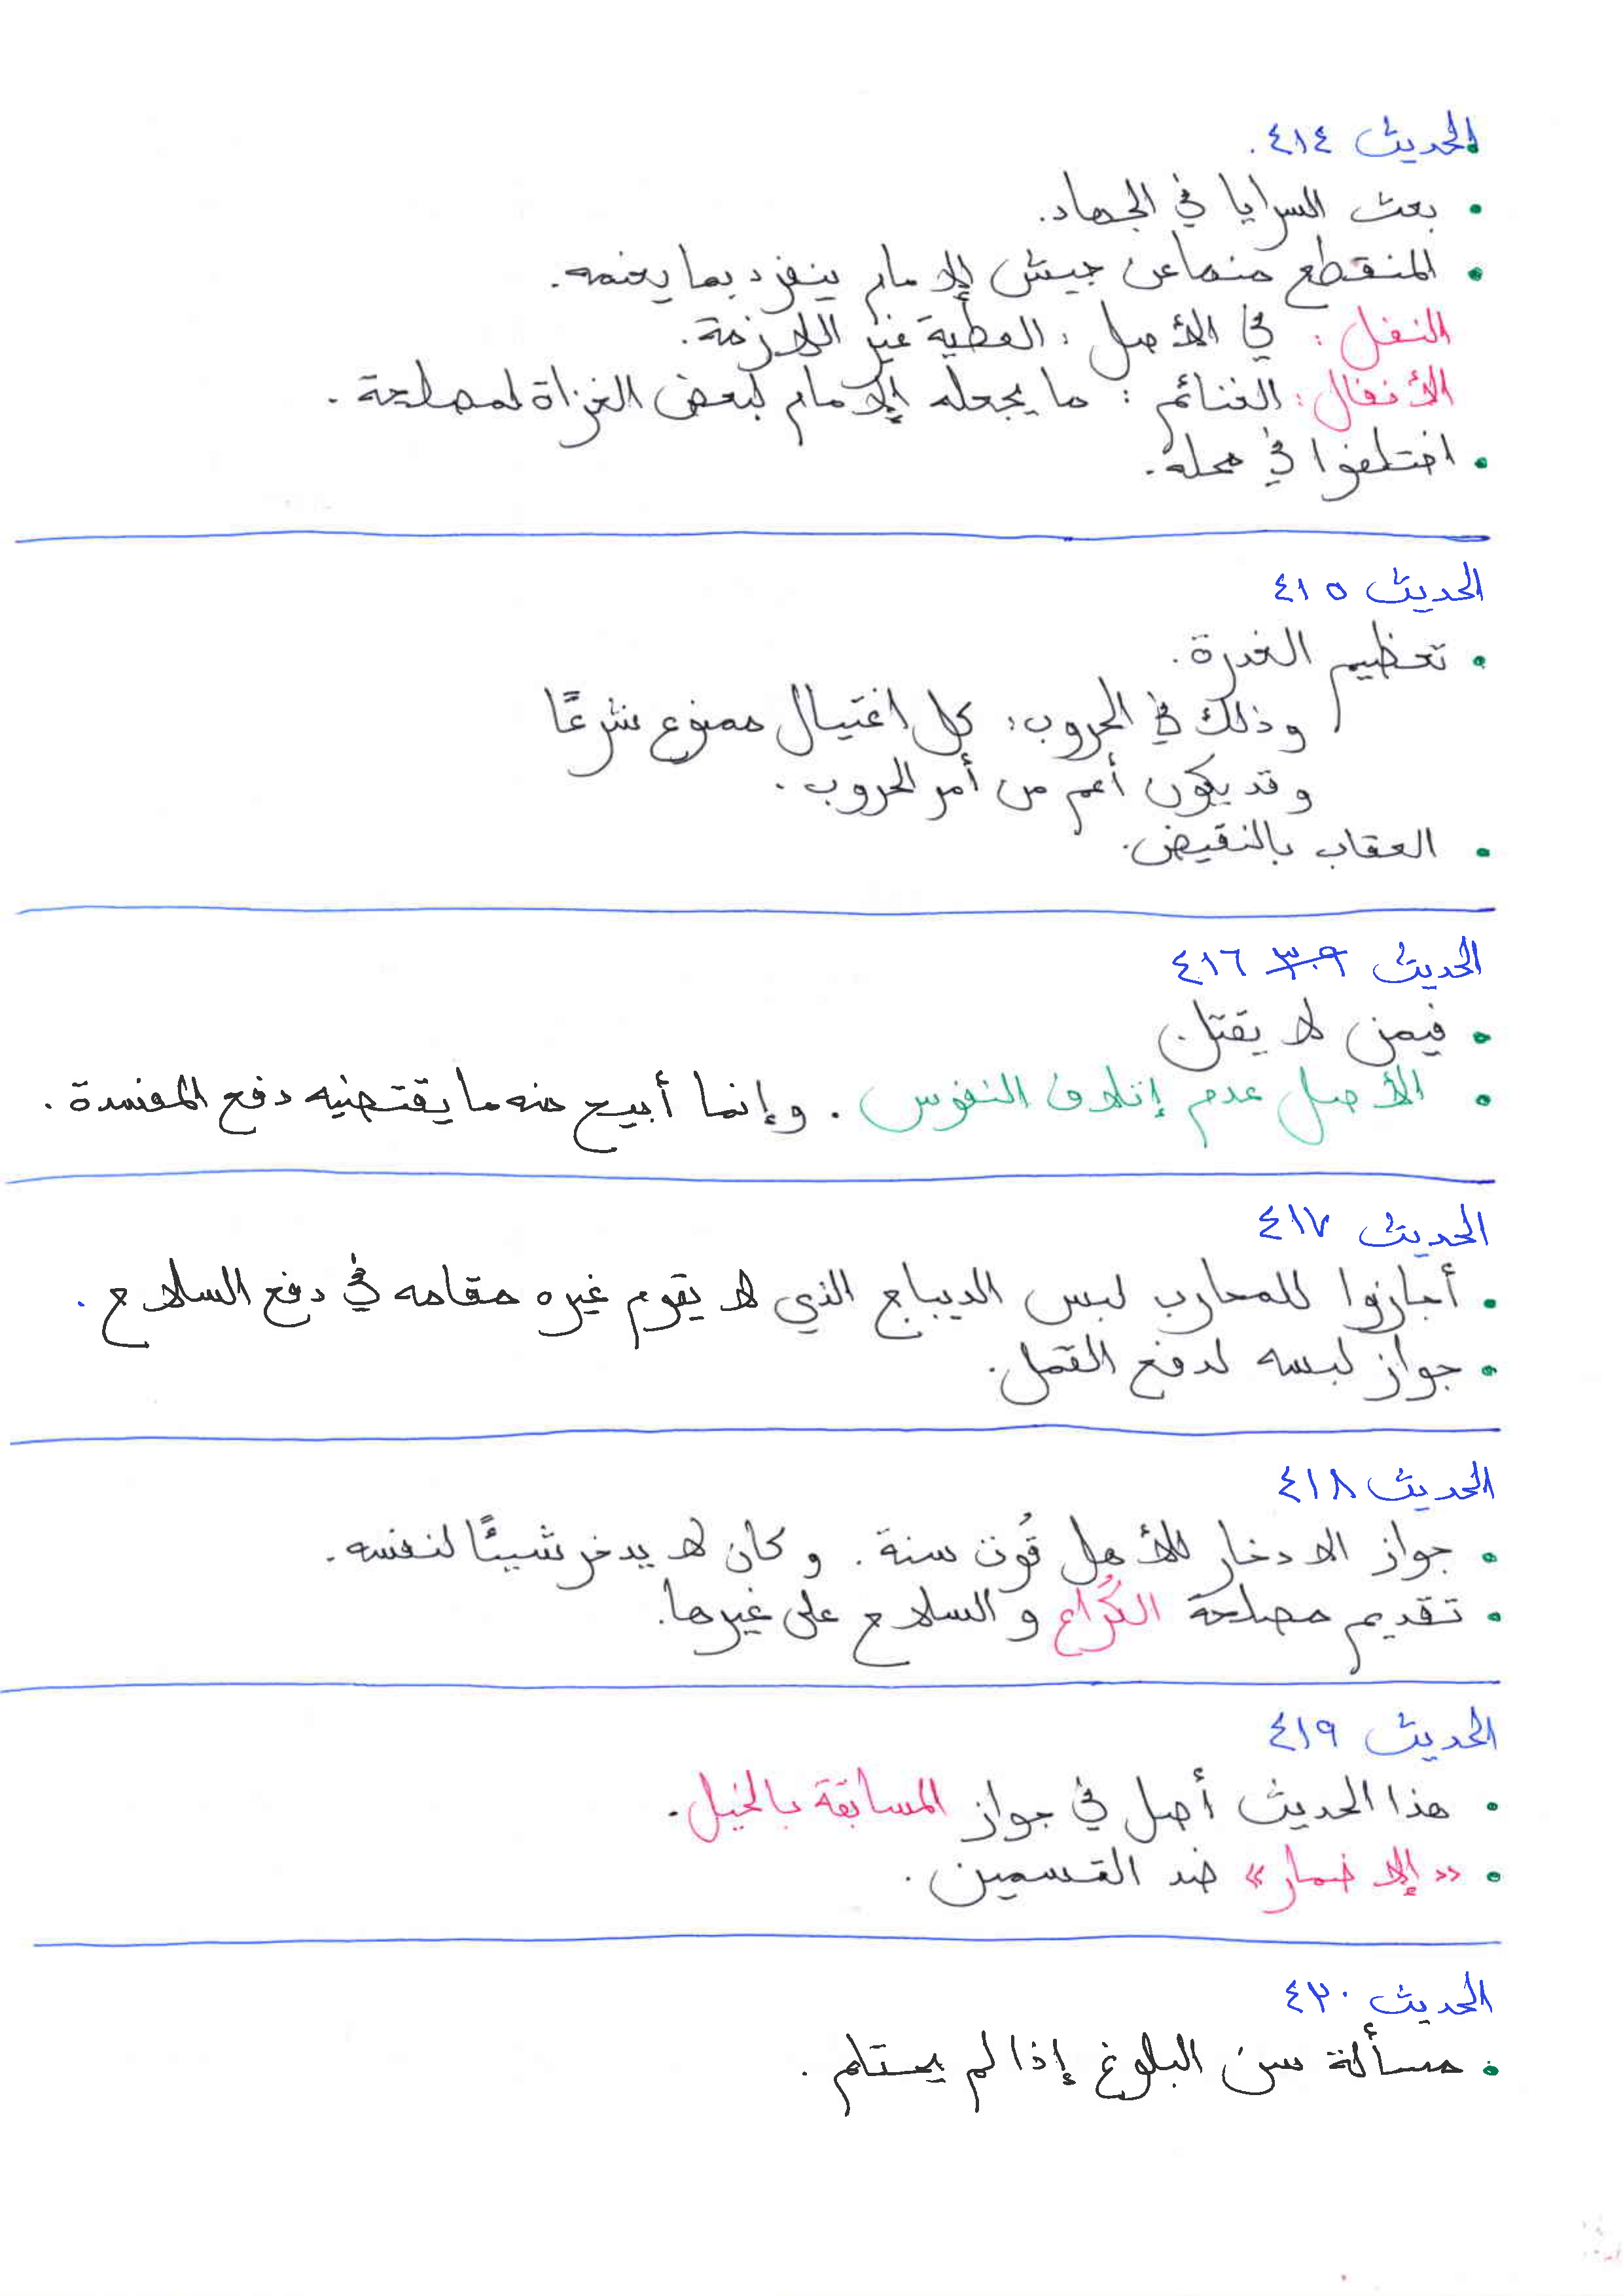 الحديث ٤١٤.
• بعث السرايا في الجهاد.
• المنقطع منها عن جيش الإمام ينفرد بما يغنمه.
النفل: في الأصل: العطية غير اللازمة.
الأنفال: الغنائم: ما يجعله الإمام لبعض الغزاة لمصلحة.
• اختلفوا في محله.
الحديث ٤١٥
• تعظيم الغدرة.
وذلك في الحروب: كل اغتيال ممنوع شرعًا
وقد يكون أعم من أمر الحروب.
• العقاب بالنقيض.
الحديث ٣٠٩ ٤١٦
• فيمن لا يقتل.
• الأصل عدم إتلاف النفوس. وإنما أبيح منه ما يقتضيه دفع المفسدة.
الحديث ٤١٧
• أجازوا للمحارب لبس الديباج الذي لا يقوم غيره مقامه في دفع السلاح.
• جواز لبسه لدفع القمل.
الحديث ٤١٨
• جواز الادخار للأهل قُوت سنة. وكان لا يدخر شيئًا لنفسه.
• تقديم مصلحة الكُرَاع والسلاح على غيرها.
الحديث ٤١٩
• هذا الحديث أصل في جواز المسابقة بالخيل.
• «الإضمار» ضد التسمين.
الحديث ٤٢٠
• مسألة سن البلوغ إذا لم يحتلم.